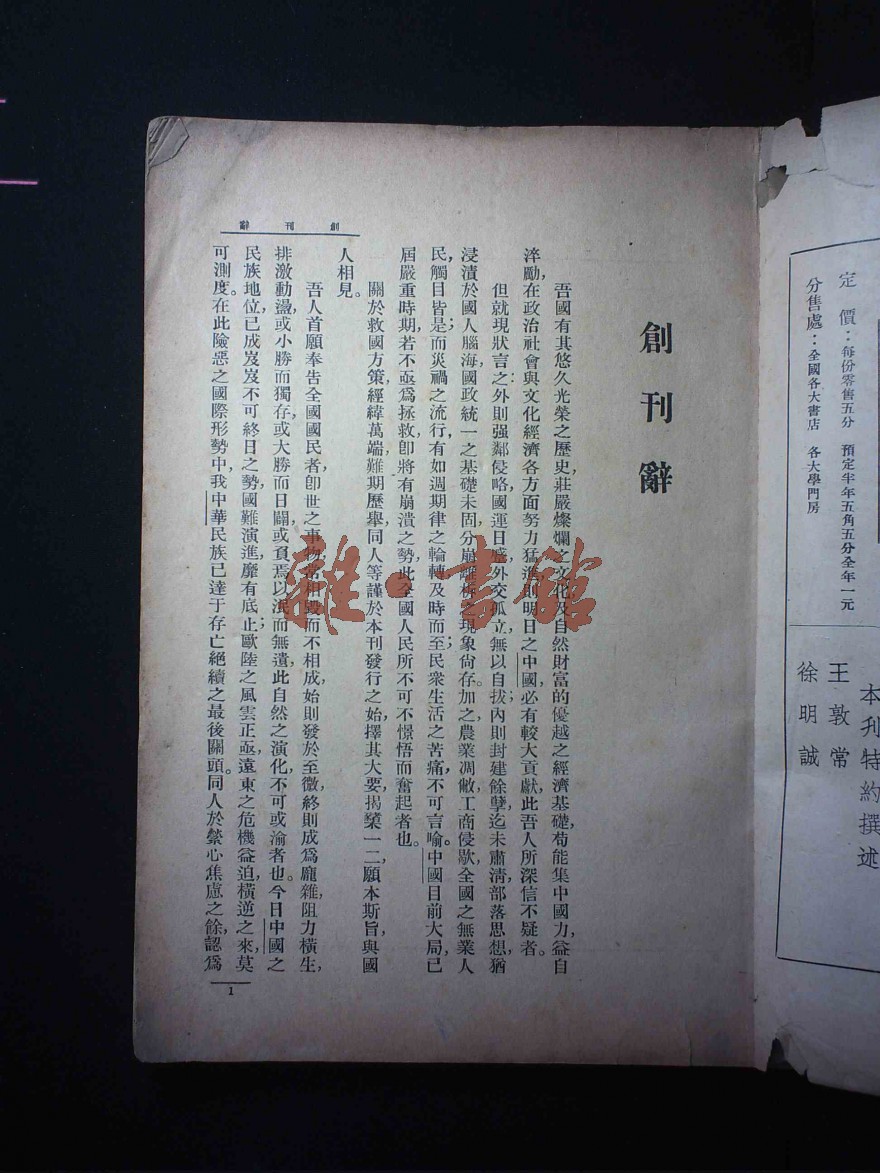 定價：每份零售五分　預定半年五角五分全年一元
分售處：全國各大書店　各大學門房
本刊特約撰述
王敦常
徐明誠
創刊辭
創刊辭
吾國有其悠久光榮之歷史，莊嚴燦爛之文化及自然財富的優越之經濟基礎，苟能集中國力，益自
淬勵，在政治社會與文化經濟各方面努力猛進，則明日之中國，必有較大貢獻，此吾人所深信不疑者。
但就現狀言之：外則强鄰侵略，國運日蹙，外交孤立，無以自拔；內則封建餘孽，迄未肅淸，部落思想，猶
浸漬於國人腦海，國政統一之基礎未固，分崩離析之現象尙存。加之農業凋敝，工商侵歇，全國之無業人
民，觸目皆是；而災禍之流行，有如週期律之輪轉，及時而至；民衆生活之苦痛，不可言喻。中國目前大局，已
屆嚴重時期，若不亟爲拯救，卽將有崩潰之勢，此全國人民所不可不憬悟而奮起者也。
關於救國方策，經緯萬端，難期歷舉，同人等謹於本刊發行之始，擇其大要，揭櫫一二，願本斯旨，與國
人相見。
吾人首願奉告全國國民者，卽世之事物，常相毀而不相成，始則發於至微，終則成爲龐雜，阻力橫生，
排激動盪，或小勝而獨存，或大勝而日闢，或負焉以泯而無遺，此自然之演化，不可或渝者也。今日中國之
民族地位，已成岌岌不可終日之勢，國難演進，靡有底止；歐陸之風雲正亟，遠東之危機益迫，橫逆之來，莫
可測度。在此險惡之國際形勢中，我中華民族已達于存亡絕續之最後關頭。同人於縈心焦慮之餘，認爲
1
雜·書館